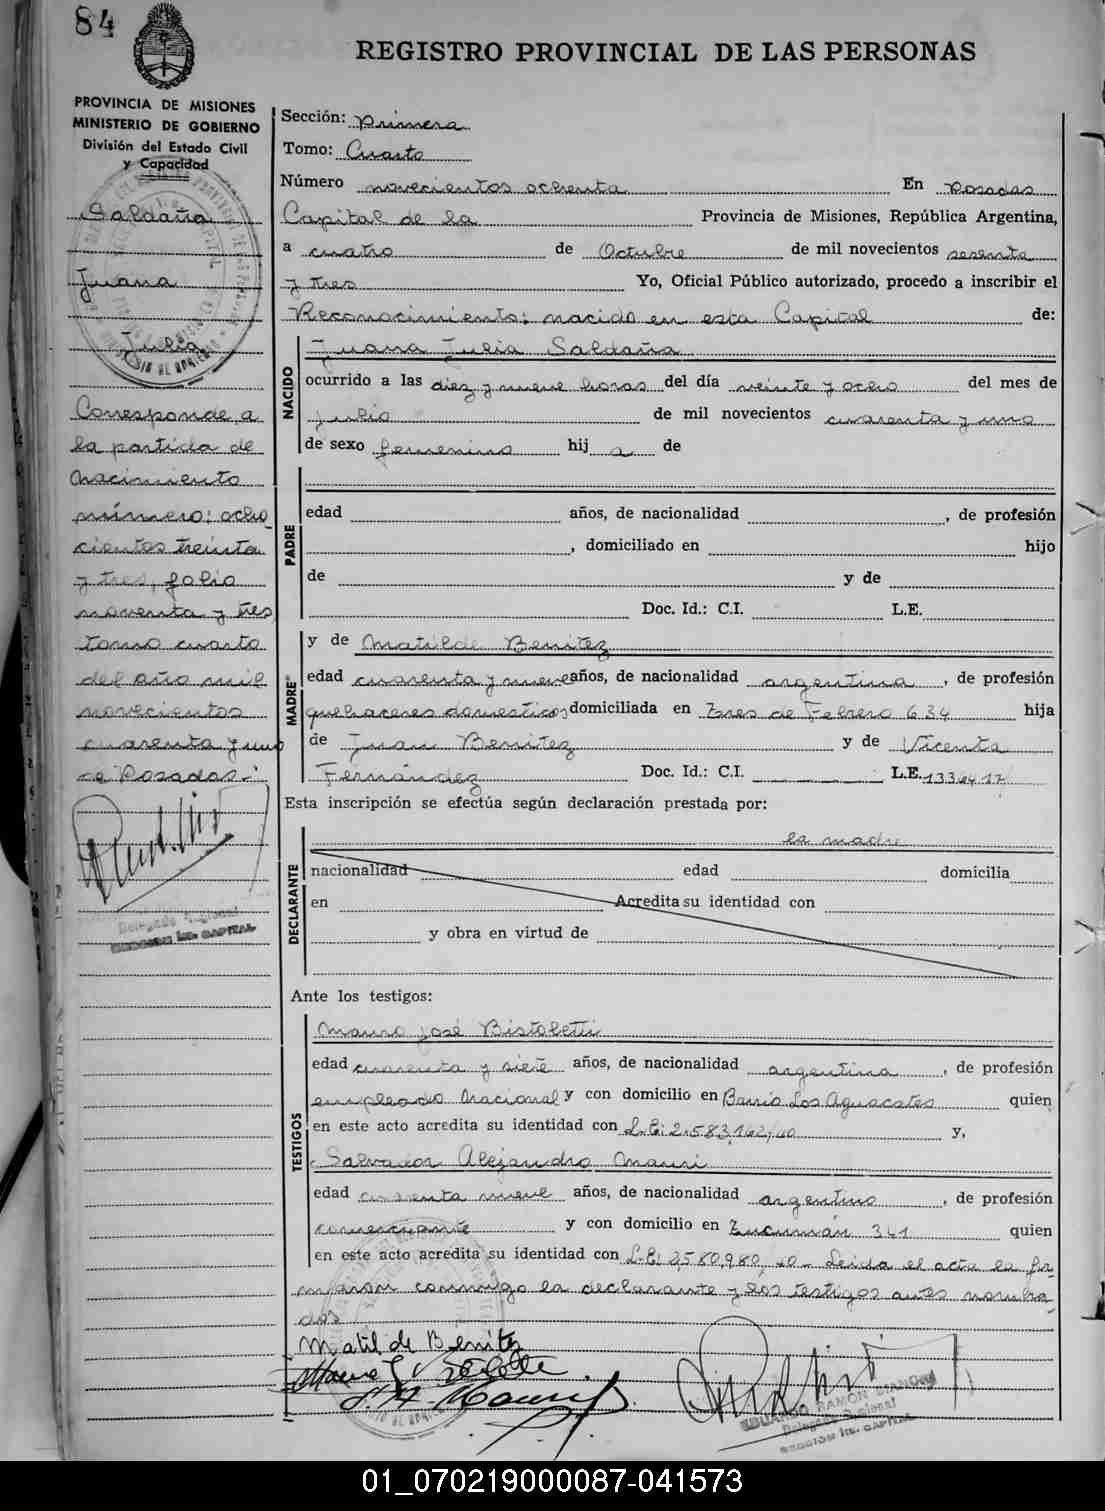 84
REGISTRO PROVINCIAL DE LAS PERSONAS
PROVINCIA DE MISIONES
MINISTERIO DE GOBIERNO
División del Estado Civil
y Capacidad
Saldaña
Juana
Julia
Corresponde a
la partida de
nacimiento
número: ocho
cientos treinta
y tres, folio
noventa y tres
tomo cuarto
del año mil
novecientos
cuarenta y uno
de Posadas.-
Delegado Regional
SECCION 1ra. CAPITAL
Sección: Primera
Tomo: Cuarto
Número novecientos ochenta En Posadas
Capital de la Provincia de Misiones, República Argentina,
a cuatro de Octubre de mil novecientos sesenta
y tres Yo, Oficial Público autorizado, procedo a inscribir el
Reconocimiento: nacido en esta Capital de:
NACIDO
Juana Julia Saldaña
ocurrido a las diez y nueve horas del día veinte y ocho del mes de
Julio de mil novecientos cuarenta y uno
de sexo femenino hij a de
PADRE
edad años, de nacionalidad , de profesión
, domiciliado en hijo
de y de
Doc. Id.: C.I. L.E.
MADRE
y de Matilde Benítez
edad cuarenta y nueve años, de nacionalidad argentina , de profesión
quehaceres domesticos domiciliada en Tres de Febrero 634 hija
de Juan Benítez y de Vicenta
Fernández Doc. Id.: C.I. L.E.
Esta inscripción se efectúa según declaración prestada por:
DECLARANTE
la madre
nacionalidad edad domicilia
en Acredita su identidad con
y obra en virtud de
Ante los testigos:
TESTIGOS
Mauro José Bistoletti
edad cuarenta y siete años, de nacionalidad argentina , de profesión
empleado Nacional y con domicilio en Barrio Los Aguacates quien
en este acto acredita su identidad con y,
Salvador Alejandro Mauri
edad cuarenta nueve años, de nacionalidad argentino , de profesión
comerciante y con domicilio en Tucumán 341 quien
en este acto acredita su identidad con Leida el acta la fir
maron conmigo la declarante y los testigos antes nombra
dos
Matilde Benítez
EDUARDO RAMON BIANCHI
Delegado Regional
SECCION 1ra. CAPITAL
01_070219000087-041573